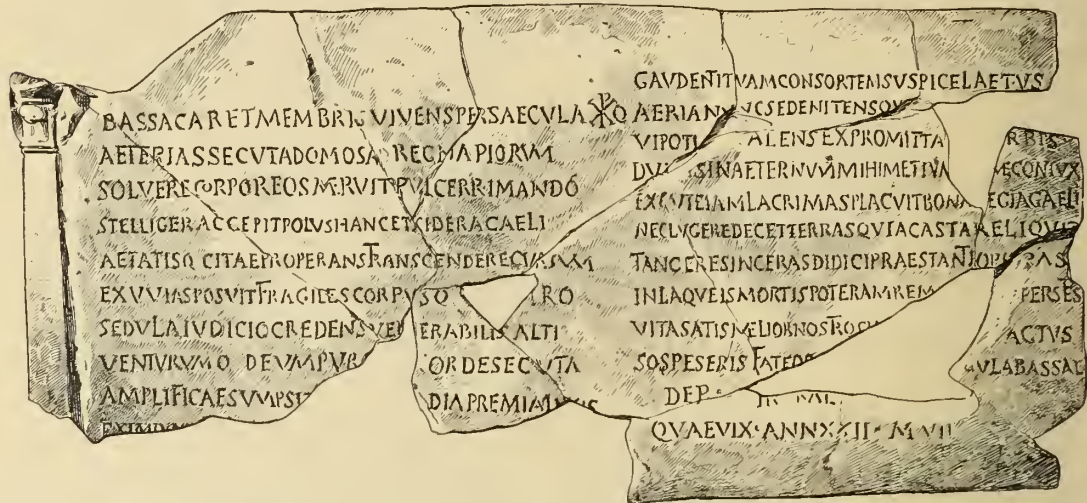 BASSACARETMEMBRISVIVENSPERSAECVLA ☧O
AETERIASSECVTADOMOSA REGNAPIORVM
SOLVERECORPOREOSMERVITPVLCERRIMANDO
STELLIGERACCEPITPOLVSHANCETXIDERACAELI
AETATISQ CITAEPROPERANSTRANSCENDERECVRSVM
EXVVIASPOSVITFRAGILESCORPVSQ RO
SEDVLAIVDICIOCREDENSVEN ERABILISALTI
VENTVRVMQ DEVMPVR ORDESECVTA
AMPLIFICAESVMPSIT DIAPREMIA
EXIMIVM
GAVDENTITVAMCONSORTEMSVSPICELAETVS
AERIAN VCSEDENITENS
VIPOTI ALENSEXPROMITTA RBIS
DV SINAETERNVMMIHIMETIVA MECONIVX
EXCVTEIAMLACRIMASPLACVITBONA ECIAGAELI
NECLVGEREDECETTERRASQVIACASTARELIQVIT
TANGERESINCERASDIDICIPRAESTANTIOR RAS
INLAQVEISMORTISPOTERAMREM PERSES
VITASATISMELIORNOSTROS ACTVS
SOSPESERISFATEOR VLABASSAE
DEP
QVAEVIX·ANNXXII·MVII